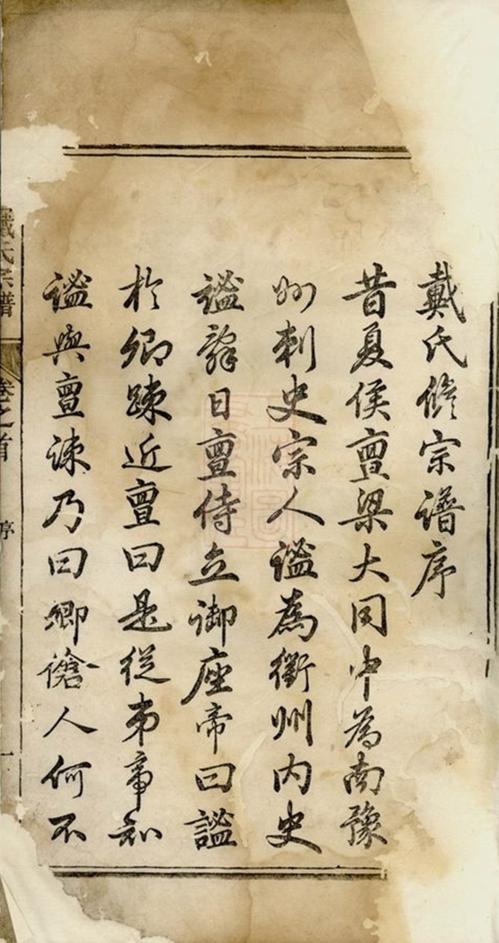 戴氏修宗譜序
昔夏侯亶梁大同中為南豫
州刺史宗人謐為衡州内史
謐辭日亶侍立御座帝曰謐
於卿踈近亶曰是從弟帝知
謐與亶疎乃曰卿傖人何不
戴氏宗譜
卷之首
序
一